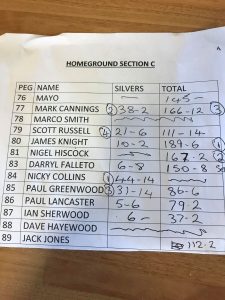 A
HOMEGROUND SECTION C
PEG NAME SILVERS TOTAL
76 MAYO — 145 —
77 MARK CANNINGS ② 38-2 166-12 ③
78 MARCO SMITH
79 SCOTT RUSSELL ④ 21-6 111-14
80 JAMES KNIGHT 10-2 189-6 ①
81 NIGEL HISCOCK 167-2 ②
83 DARRYL FALLETO 6-8 150-8
84 NICKY COLLINS ① 44-14
85 PAUL GREENWOOD ③ 31-14 86-6
86 PAUL LANCASTER 5-6 79-2
87 IAN SHERWOOD 6 - 37-2
88 DAVE HAYEWOOD
89 JACK JONES 112-2